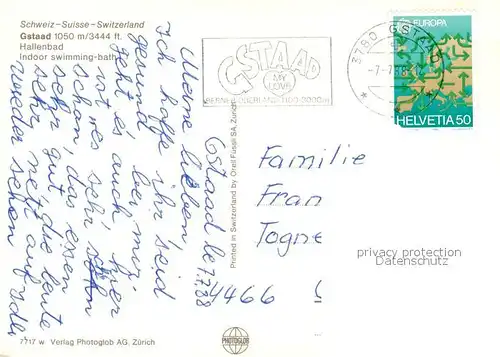 Schweiz - Suisse - Switzerland
Gstaad 1050 m/3444 ft.
Hallenbad
Indoor swimming-bath
GSTAAD
MY LOVE
BERNER OBERLAND 1100-3000 m
3780 GSTAAD
-7.-7.88
EUROPA
HELVETIA 50
Gstaad le 7.7.88
Meine lieben
Ich hoffe ihr seid
gesund bei mir
geht es auch hier
ist es sehr schön
schon, das essen
sehr gut
sehr net, die leute
wieder sehen auf
Printed in Switzerland by Orell Füssli SA, Zürich
Familie
Fran
Togne
4466
privacy protection
Datenschutz
7717 w Verlag Photoglob AG, Zürich
PHOTOGLOB